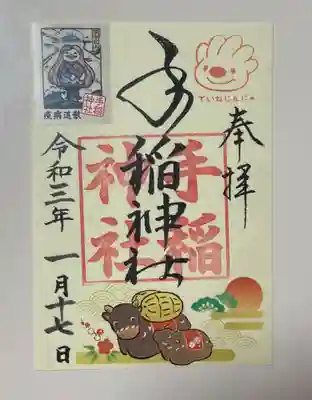 奉拝
ていねじんじゃ
手稲神社
手稲
神社
疾病退散
令和三年 一月十七日